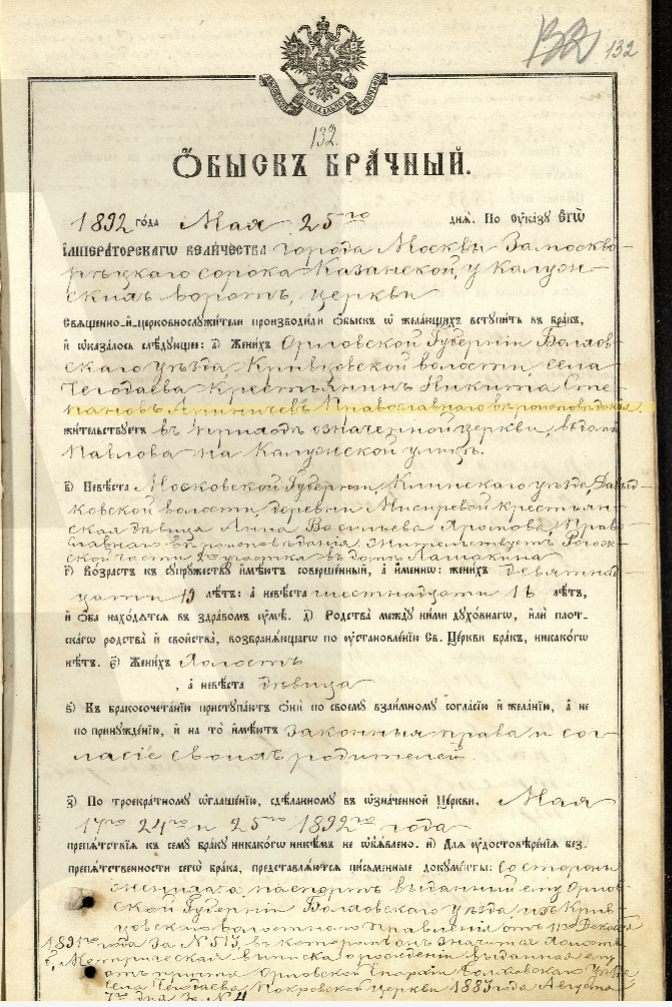 132
132
ОБЫСКЪ БРАЧНЫЙ.
1892 года Мая 25го дня. По Указу ЕГѠ
ІМПЕРАТОРСКАГѠ ВЕЛИЧЕСТВА города Москвы Замоскво-
рѣцкаго сорока Казанской, у Калуж-
скихъ воротъ, церкви
Священно-и-церковнослужители производили Обыскъ ѡ желающихъ вступить въ бракъ,
и ѡказалось слѣдующее: а҃) Женихъ Орловской Губерніи Болхов-
скаго уѣзда, Кривцовской волости, села
крестьянинъ Никита Сте-
пановъ Православнаго вѣроисповѣданія
жительствуетъ въ приходѣ означенной церкви, въ домѣ
Павлова на Калужской улицѣ.
в҃) Невѣста Московской Губерніи, Клинскаго уѣзда,
волости, деревни Мисиревой крестьян-
ская дѣвица Анна Васильева Прав-
славнаго вѣроисповѣданія. Жительствуетъ Рогож-
ской части 2го участка въ домѣ
г҃) Возрастъ къ супружеству имѣютъ совершенный, а именно: женихъ девятнад-
цати 19 лѣтъ: а невѣста шестнадцати 16 лѣтъ,
и оба находятся въ здравомъ умѣ. д҃) Родства между ними духовнагѡ, или плот-
скагѡ родства и свойства, возбраняющагѡ по установленію Св. Церкви бракъ, никакогѡ
нѣтъ. є҃) Женихъ Холостъ
, а невѣста дѣвица
ѕ҃) Къ бракосочетанію приступаютъ ѻни по своему взаимному согласію и желанію, а не
по принужденію, и на то имѣютъ законныя права и сог-
ласіе своихъ родителей.
з҃) По троекратному ѡглашенію, сдѣланному въ ѡзначенной Церкви, Мая
17го 24го и 25го 1892го года
препятствія къ сему браку никакогѡ никѣмъ не ѡбъявлено. и҃) Для удостовѣренія без-
препятственности сегѡ брака, представляются письменные документы: Со стороны
жениха: а паспортъ выданный ему Орлов-
ской Губерніи Болховскаго уѣзда, изъ Крив-
цовскаго волостнаго Правленія отъ 11го Декабря
1891го года за № 513, въ которомъ онъ значится холостъ
Метрическая выписка о рожденіи выданная ему
отъ причта Орловской Епархіи Болховскаго Уѣзда
села Покровской церкви 1883 года Августа
дня за № 4